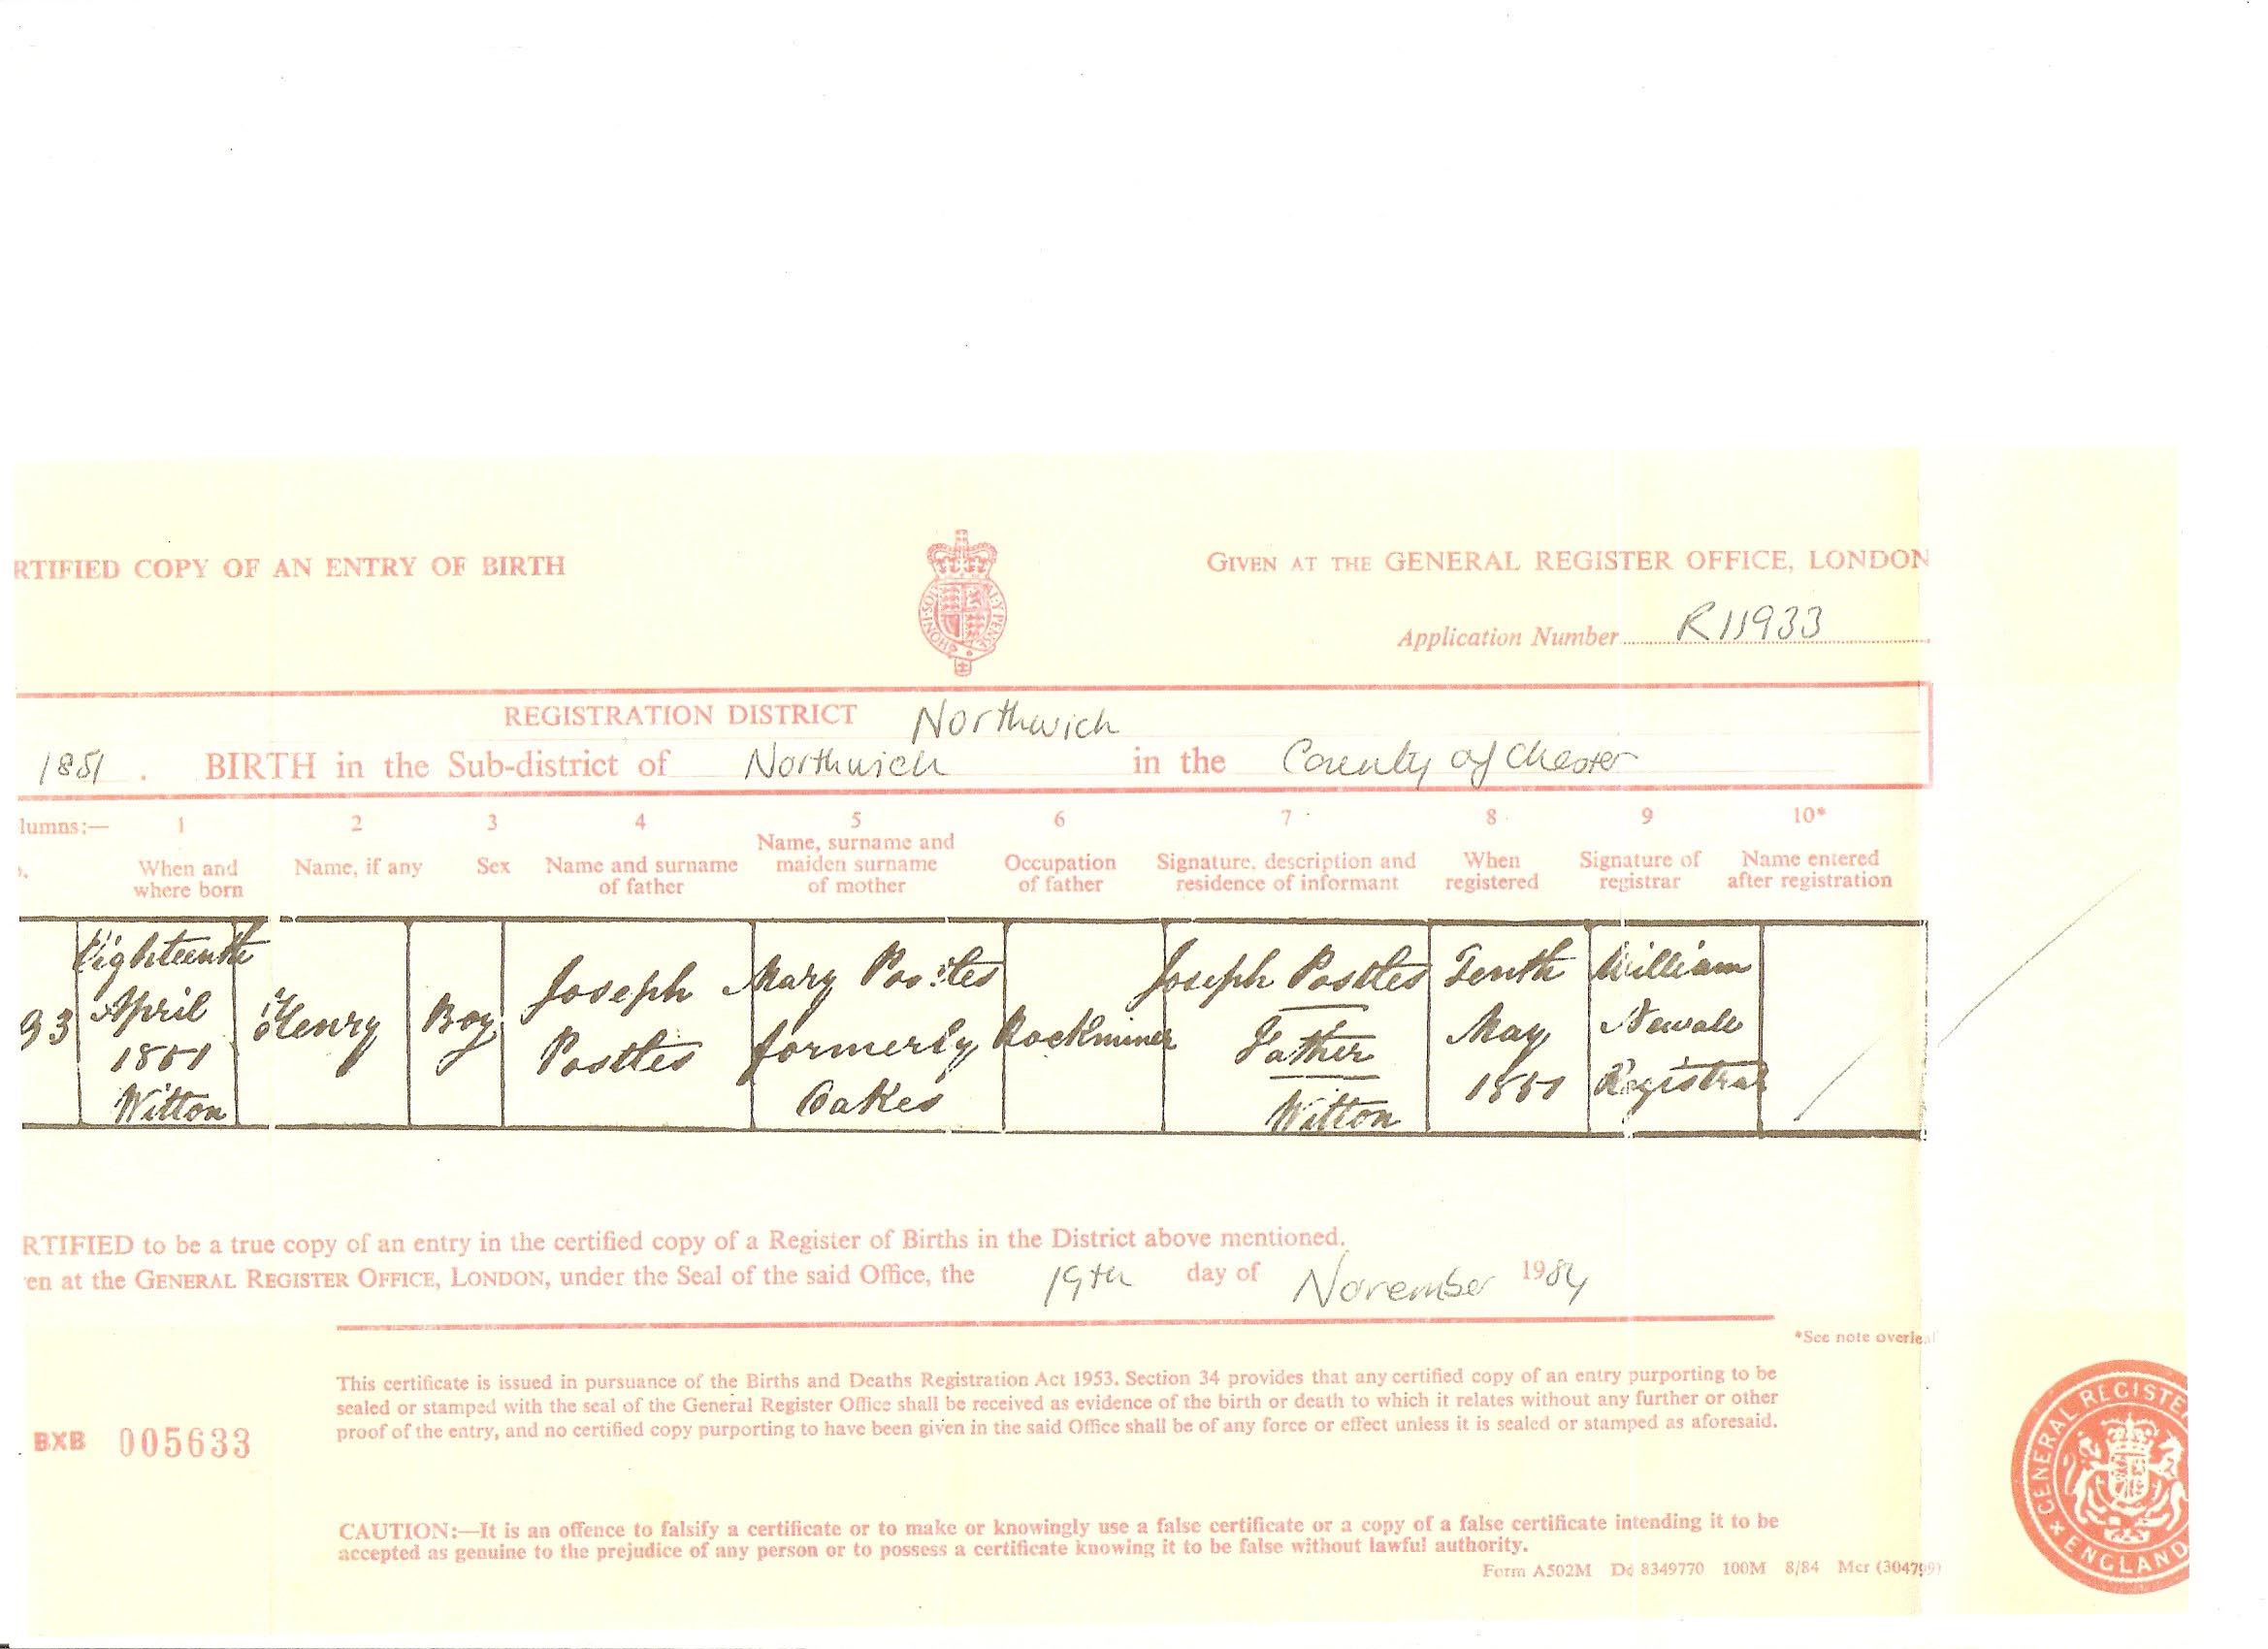 RTIFIED COPY OF AN ENTRY OF BIRTH
GIVEN AT THE GENERAL REGISTER OFFICE, LONDON
Application Number R11933
REGISTRATION DISTRICT Northwich
1851. BIRTH in the Sub-district of Northwich in the County of Chester
lumns:— 1 2 3 4 5 6 7 8 9 10*
When and where born
Name, if any
Sex
Name and surname of father
Name, surname and maiden surname of mother
Occupation of father
Signature, description and residence of informant
When registered
Signature of registrar
Name entered after registration
93
Eighteenth
April
1851
Witton
Henry
Boy
Joseph
Postles
Mary Postles
formerly
Oakes
Rockminer
Joseph Postles
Father
Witton
Tenth
May
1851
William
Newall
Registrar
RTIFIED to be a true copy of an entry in the certified copy of a Register of Births in the District above mentioned.
en at the GENERAL REGISTER OFFICE, LONDON, under the Seal of the said Office, the 19th day of November 1984
*See note overleaf
This certificate is issued in pursuance of the Births and Deaths Registration Act 1953. Section 34 provides that any certified copy of an entry purporting to be
sealed or stamped with the seal of the General Register Office shall be received as evidence of the birth or death to which it relates without any further or other
proof of the entry, and no certified copy purporting to have been given in the said Office shall be of any force or effect unless it is sealed or stamped as aforesaid.
BXB 005633
CAUTION:—It is an offence to falsify a certificate or to make or knowingly use a false certificate or a copy of a false certificate intending it to be
accepted as genuine to the prejudice of any person or to possess a certificate knowing it to be false without lawful authority.
Form A502M Dd 8349770 100M 8/84 Mcr (304799)
GENERAL REGISTER
ENGLAND